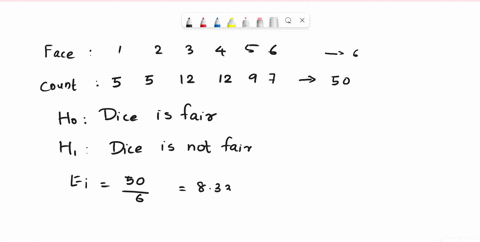 Face : 1 2 3 4 5 6 → 6
Count : 5 5 12 12 9 7 → 50
H₀ : Dice is fair
H₁ : Dice is not fair
Ei = 50/6 = 8.33